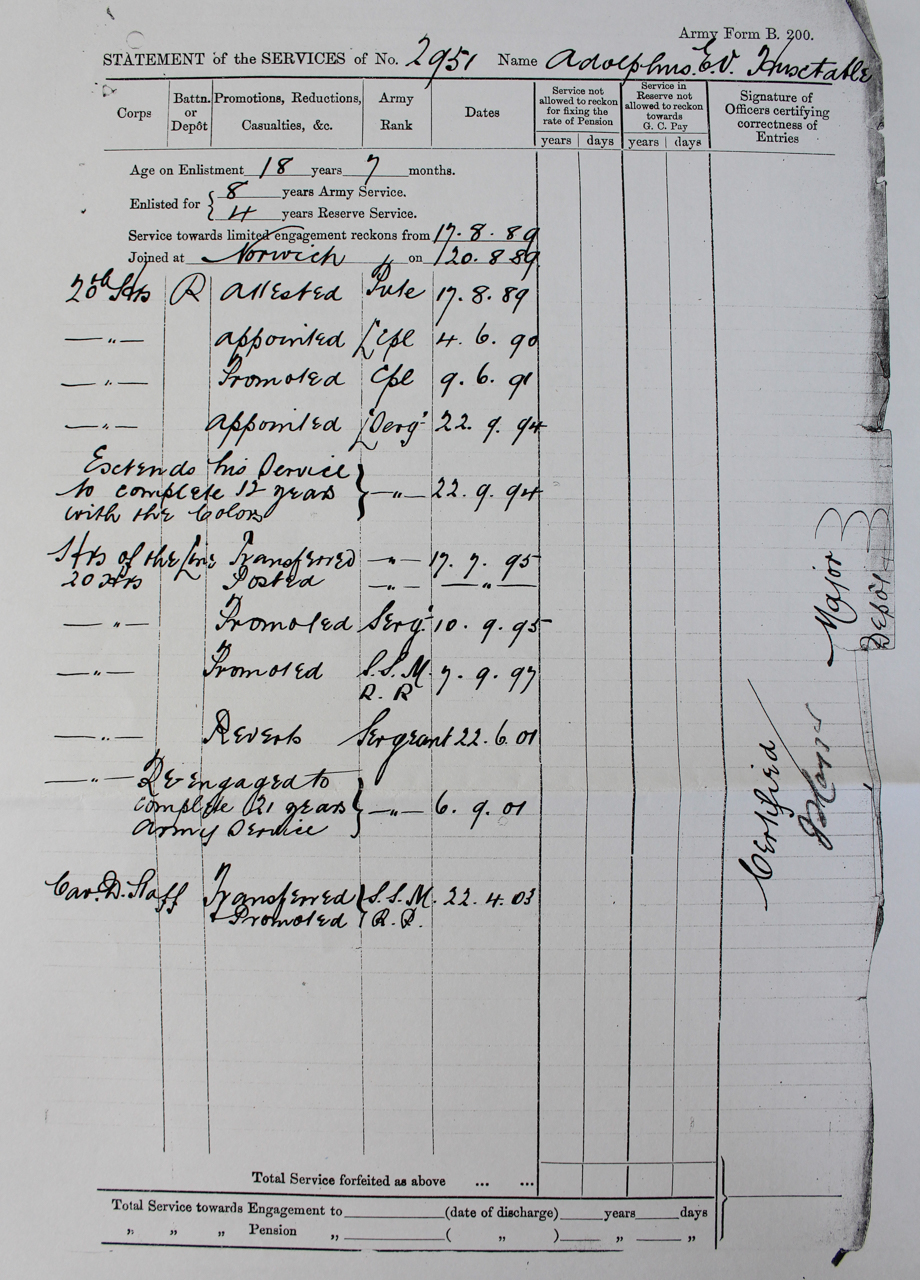 Army Form B. 200.
STATEMENT of the SERVICES of No. 2951 Name Adolphus. E. V. Huxtable
Corps
Battn. or Depôt
Promotions, Reductions, Casualties, &c.
Army Rank
Dates
Service not allowed to reckon for fixing the rate of Pension
years days
Service in Reserve not allowed to reckon towards G. C. Pay
years days
Signature of Officers certifying correctness of Entries
Age on Enlistment 18 years 7 months.
Enlisted for { 8 years Army Service.
4 years Reserve Service.
Service towards limited engagement reckons from 17. 8. 89
Joined at Norwich " on 20. 8 89
20th Hrs R Attested Pvte 17. 8. 89
— " — appointed L Cpl 4. 6. 90
— " — Promoted Cpl 9. 6. 91
— " — appointed L Serg't 22. 9. 94
Extends his Service
to complete 12 years } — " — 22. 9. 94
with the Colors
Hrs of the Line Transferred — " — 17. 7. 95
20 Hrs Posted — " — — " —
— " — Promoted Serg't 10. 9. 95
— " — Promoted S. S. M. 7. 9. 97
R. R
— " — Reverts Sergeant 22. 6. 01
— " — Re-engaged to
complete 21 years } — " — 6. 9. 01
Army Service
Cav. D. Staff Transferred S. S. M. 22. 4. 03
+ Promoted R. R.
Certified
Major
Depôt
Total Service forfeited as above ... ...
Total Service towards Engagement to (date of discharge) years days
" " " Pension " ( " ) " "